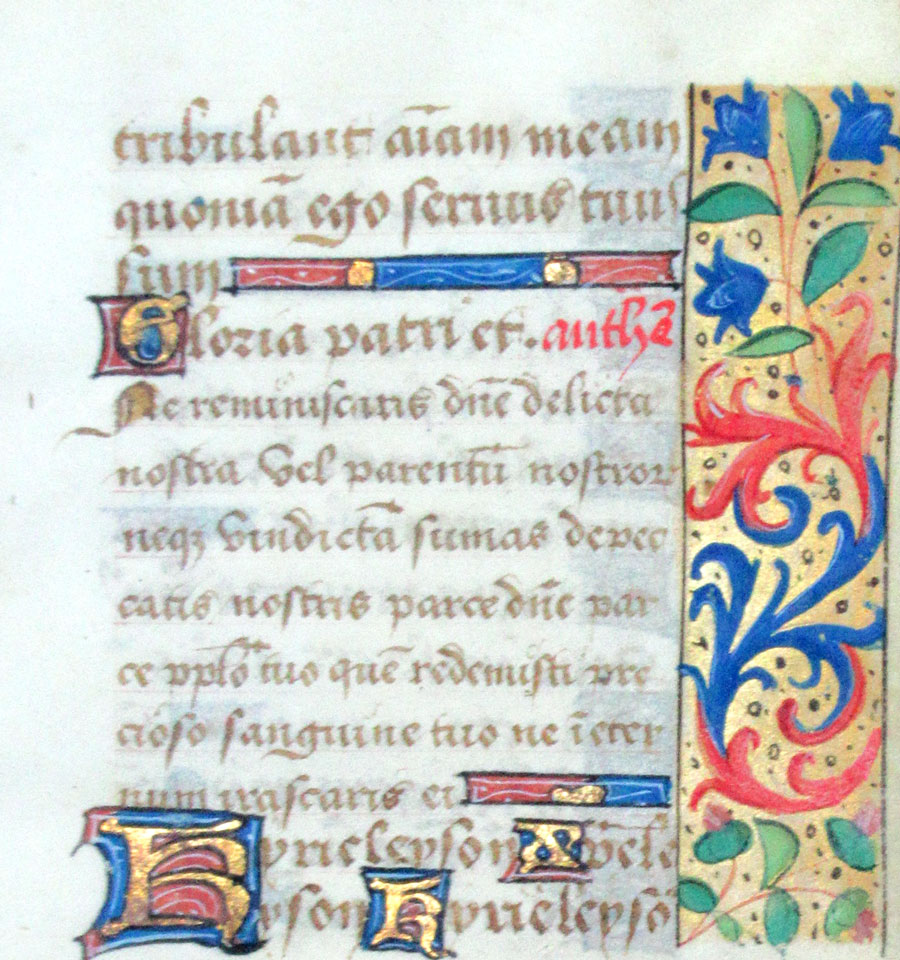 tribulant aīam meam
quoniā ego seruus tuus
sum
Gloria patri et. anthā
Ne reminiscaris dn̄e delicta
nostra vel parentū nostror
neqꝫ vindictā sumas de pec
catis nostris parce dn̄e par
ce pplo tuo quē redemisti pre
cioso sanguine tuo ne ī eter
num irascaris ei
Kyrieleyson Xp̄ele
yson Kyrieleysō